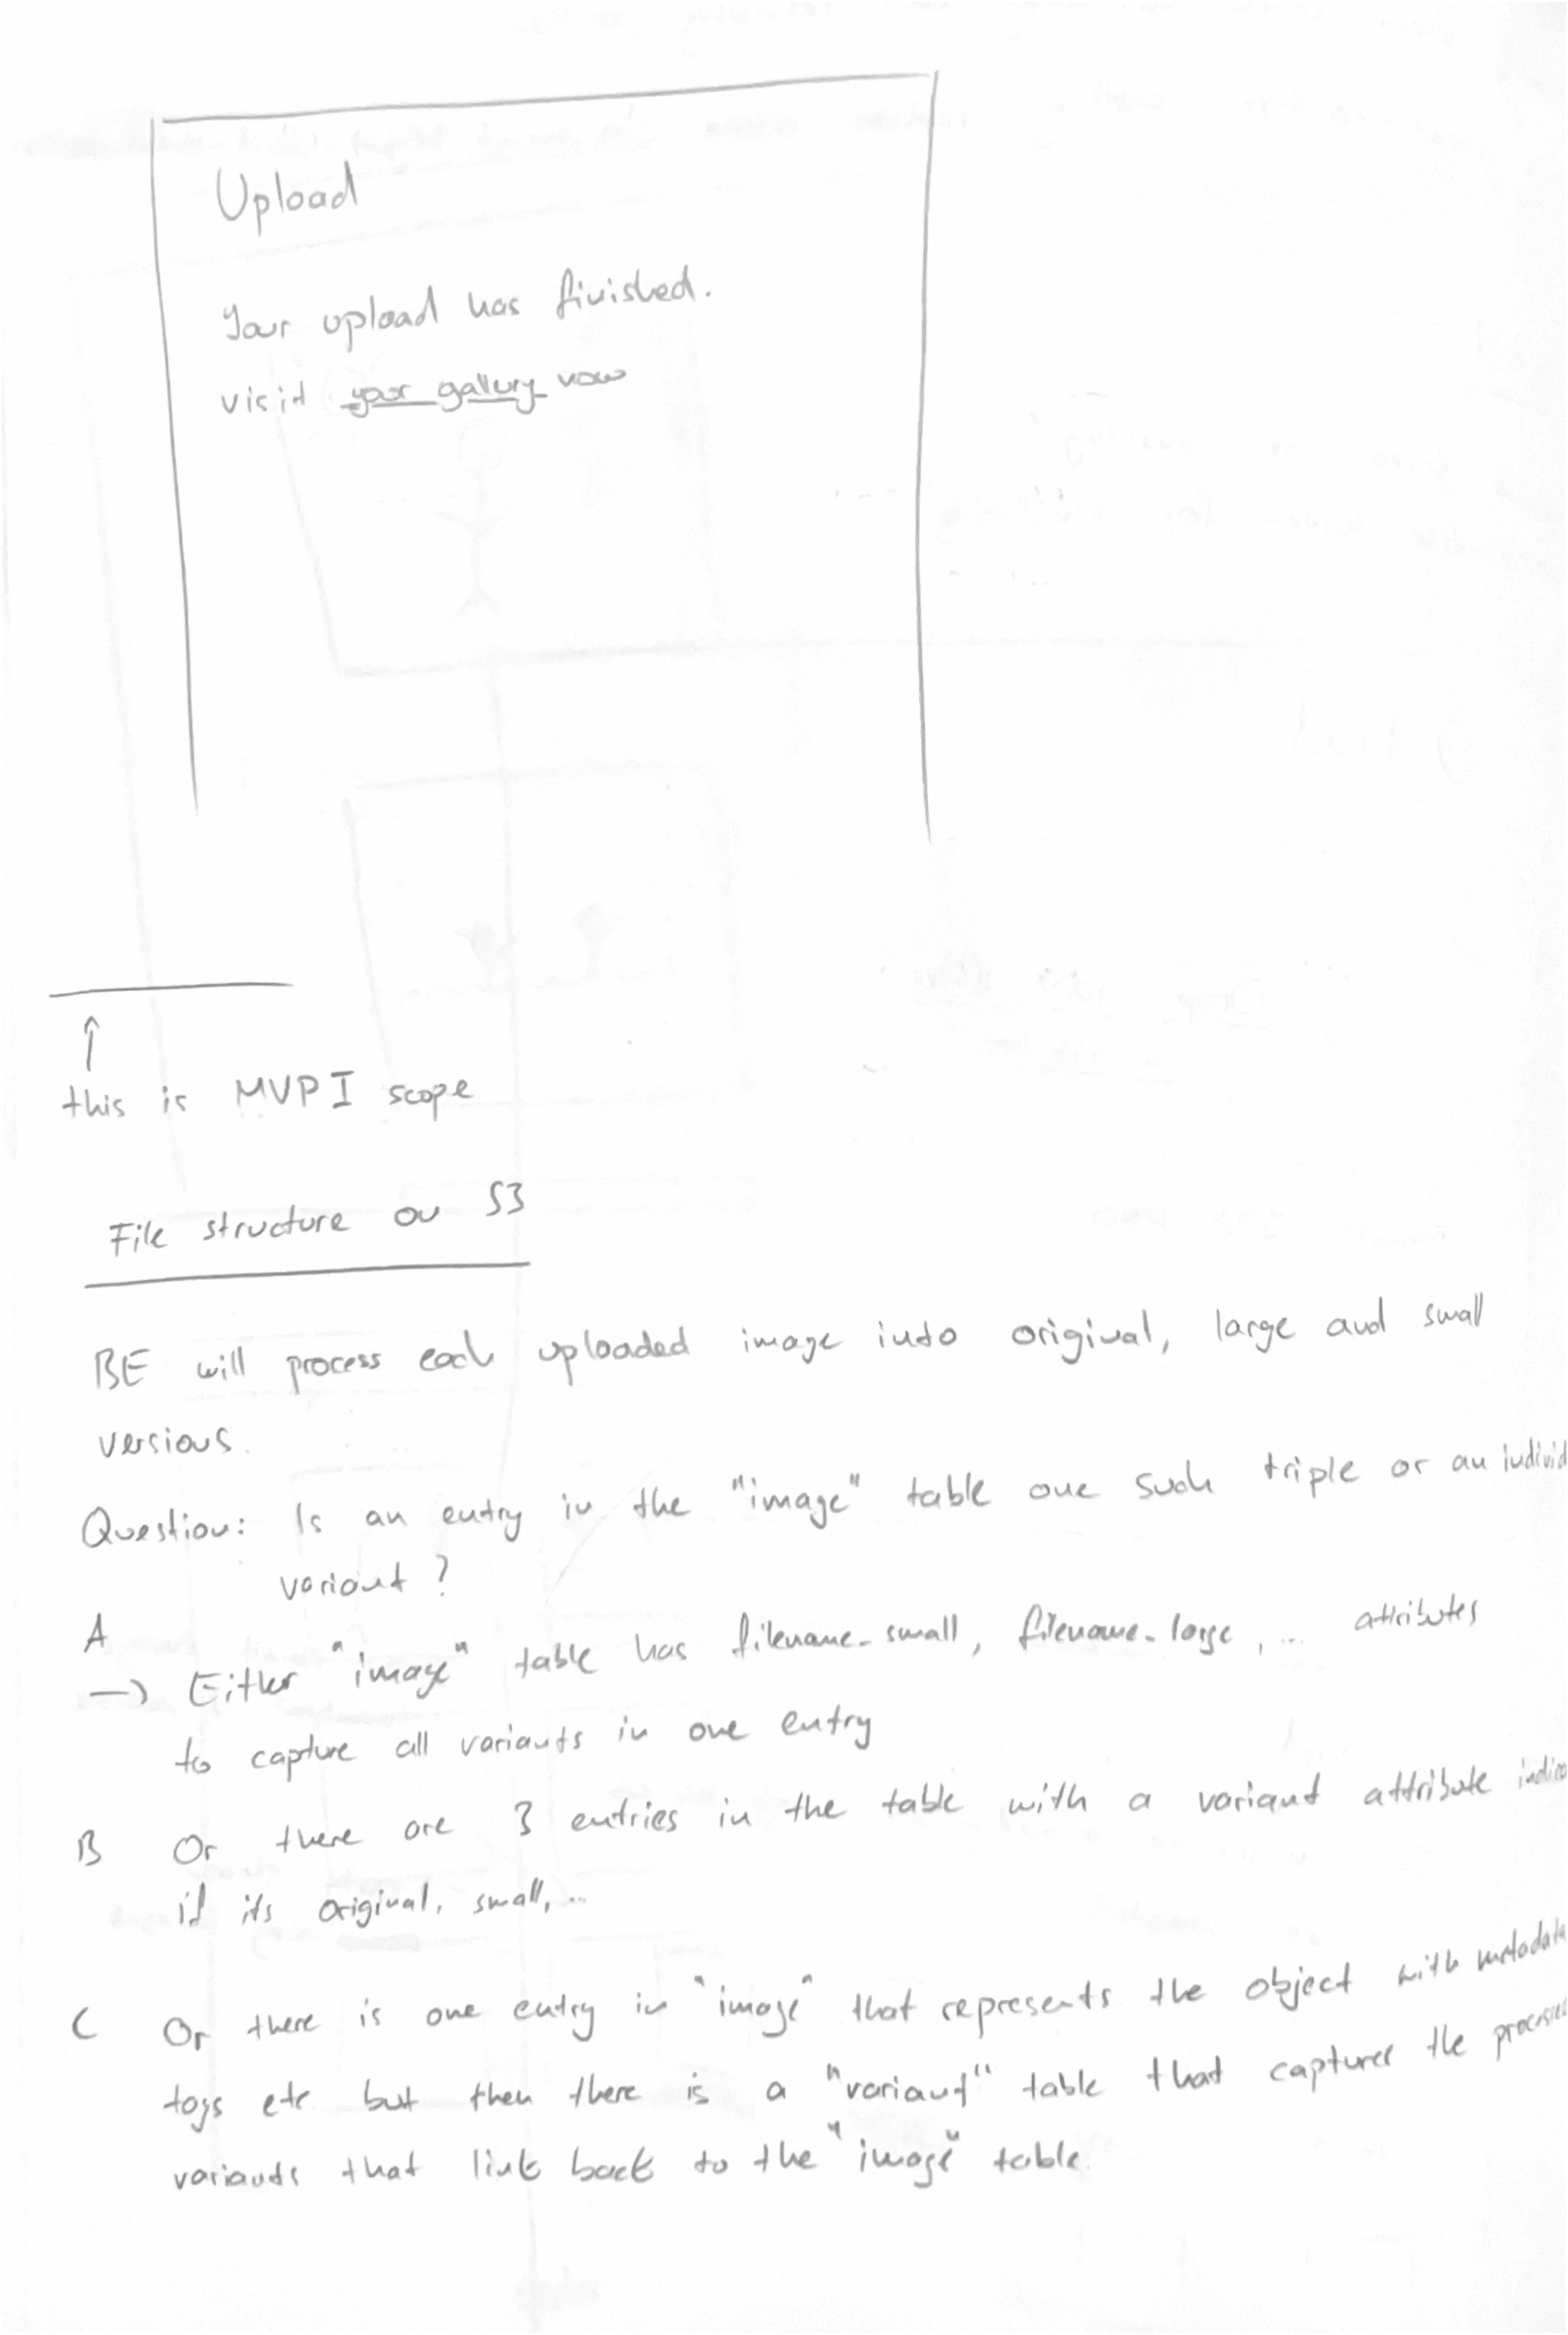 Upload
Your upload has finished.
visit your gallery now
this is MVP I scope
File structure on S3
BE will process each uploaded image into original, large and small
versions.
Question: Is an entry in the "image" table one such triple or an individ
variant?
A
→ Either "image" table has filename_small, filename_large, ... attributes
to capture all variants in one entry
B Or there are 3 entries in the table with a variant attribute indica
if its original, small, ...
C Or there is one entry in "image" that represents the object with metadata
tags etc. but then there is a "variant" table that captures the processed
variants that link back to the "image" table.